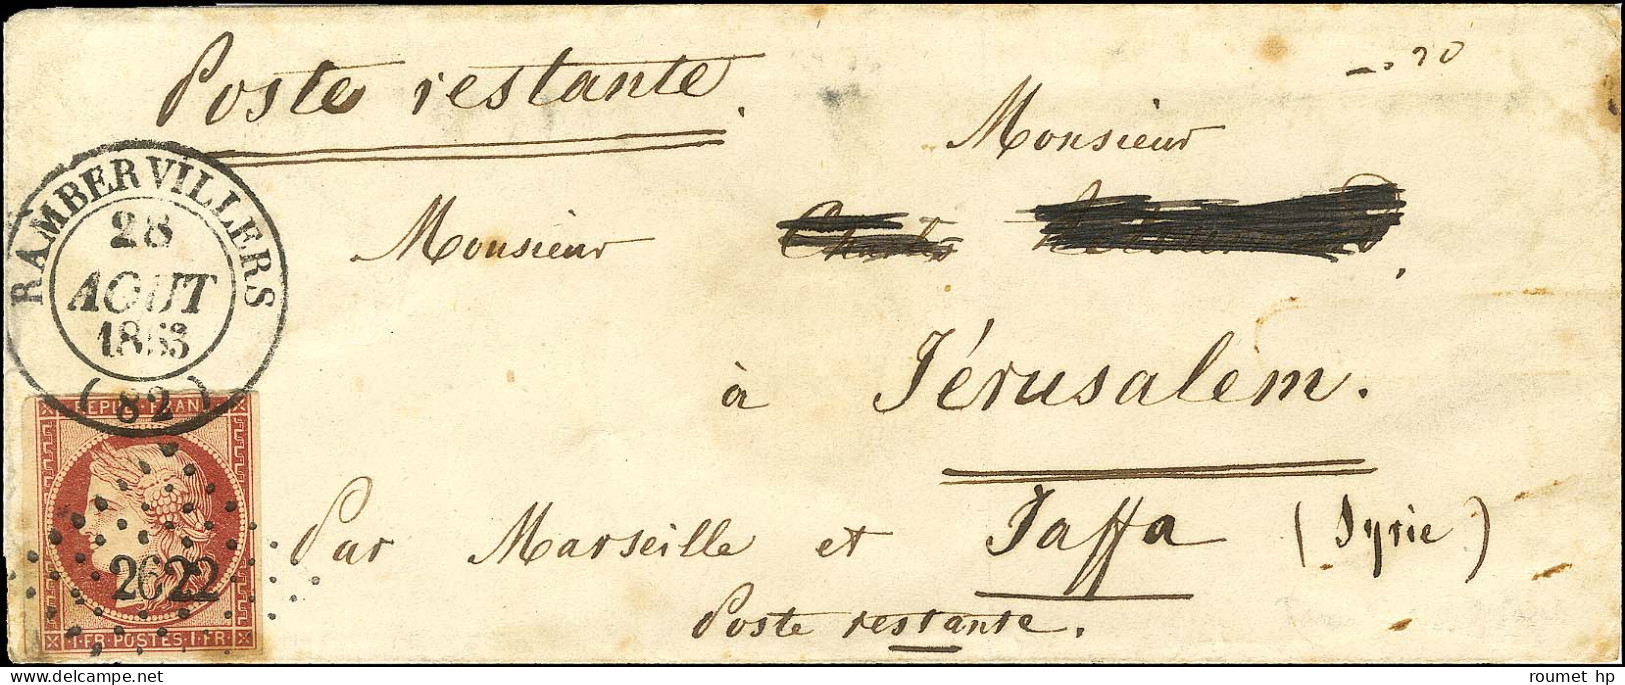 Poste restante.
Monsieur
Monsieur
à Jérusalem.
Par Marseille et Jaffa (Syrie)
Poste restante.
RAMBERVILLERS
28
AOUT
1853
(82)
REPUB. FRANC
2622
1.FR.POSTES.1.FR.
roumet hp